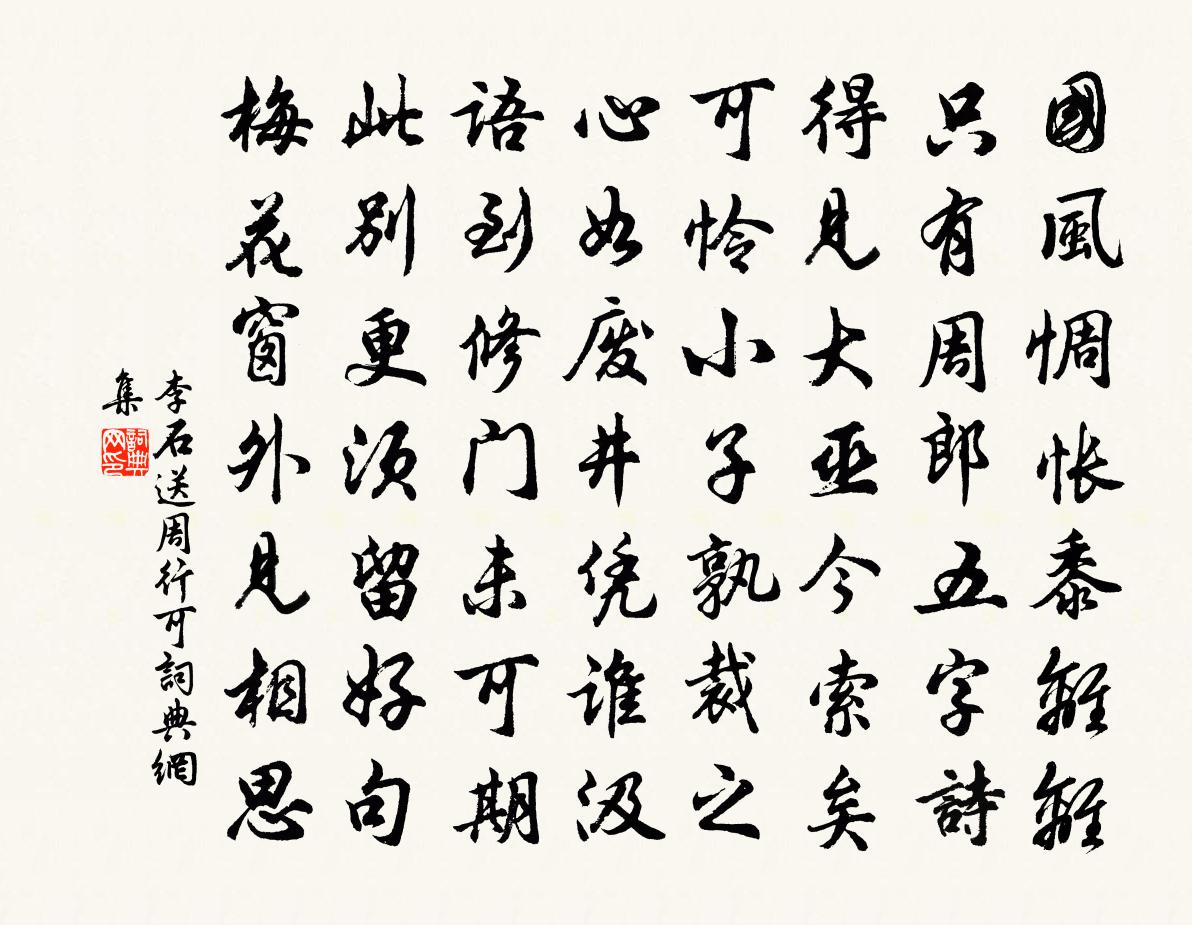 國風惆悵黍離離
只有周郎五字詩
得見大巫今索矣
可憐小子孰裁之
心如廢井凭誰汲
語到修門未可期
此別更須留好句
梅花窗外見相思
李石送周行可詞典網
集
詞典网印